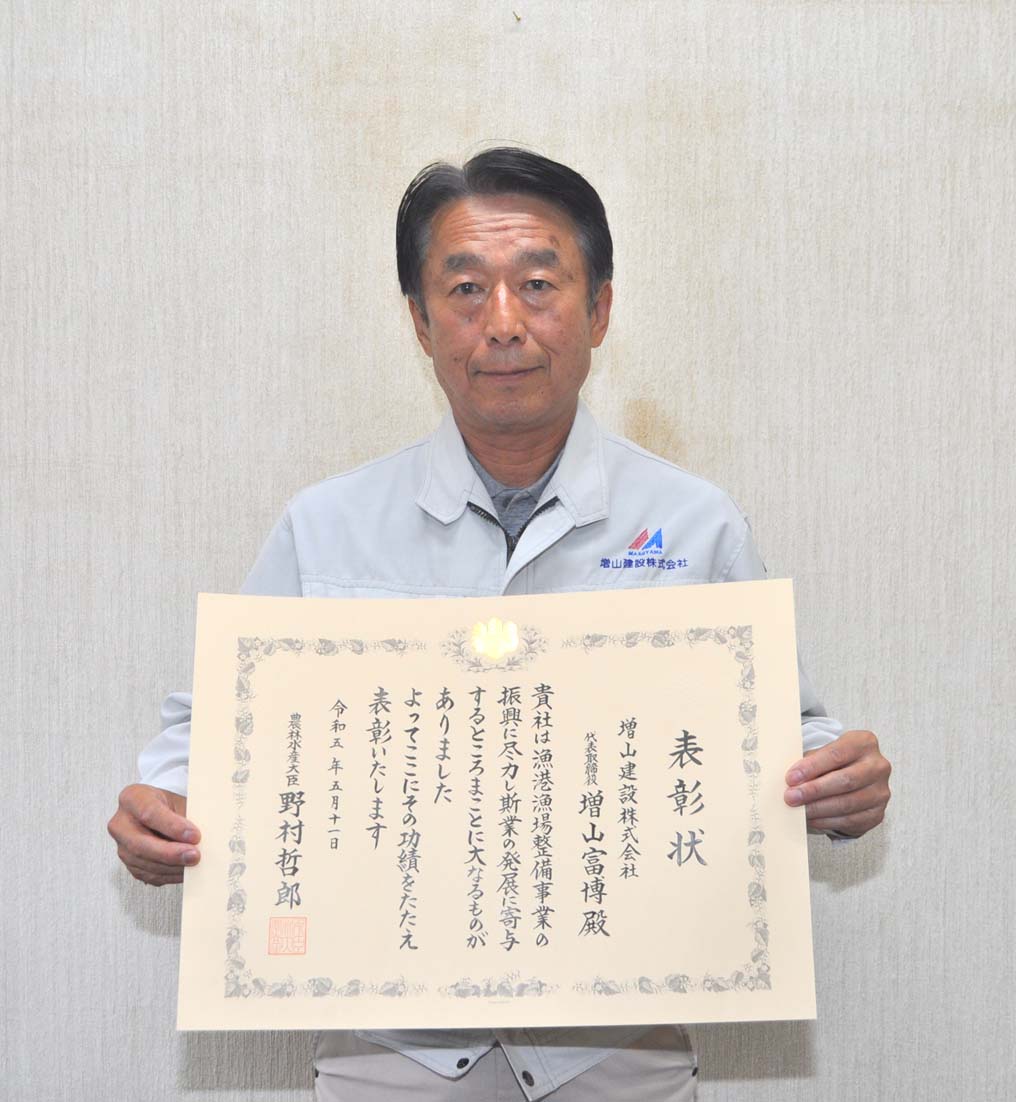 MASUYAMA
増山建設株式会社
表彰状
増山建設株式会社
代表取締役 増山富博殿
貴社は漁港漁場整備事業の
振興に尽力し斯業の発展に寄与
するところまことに大なるものが
ありました
よってここにその功績をたたえ
表彰いたします
令和五年五月十一日
農林水産大臣 野村哲郎